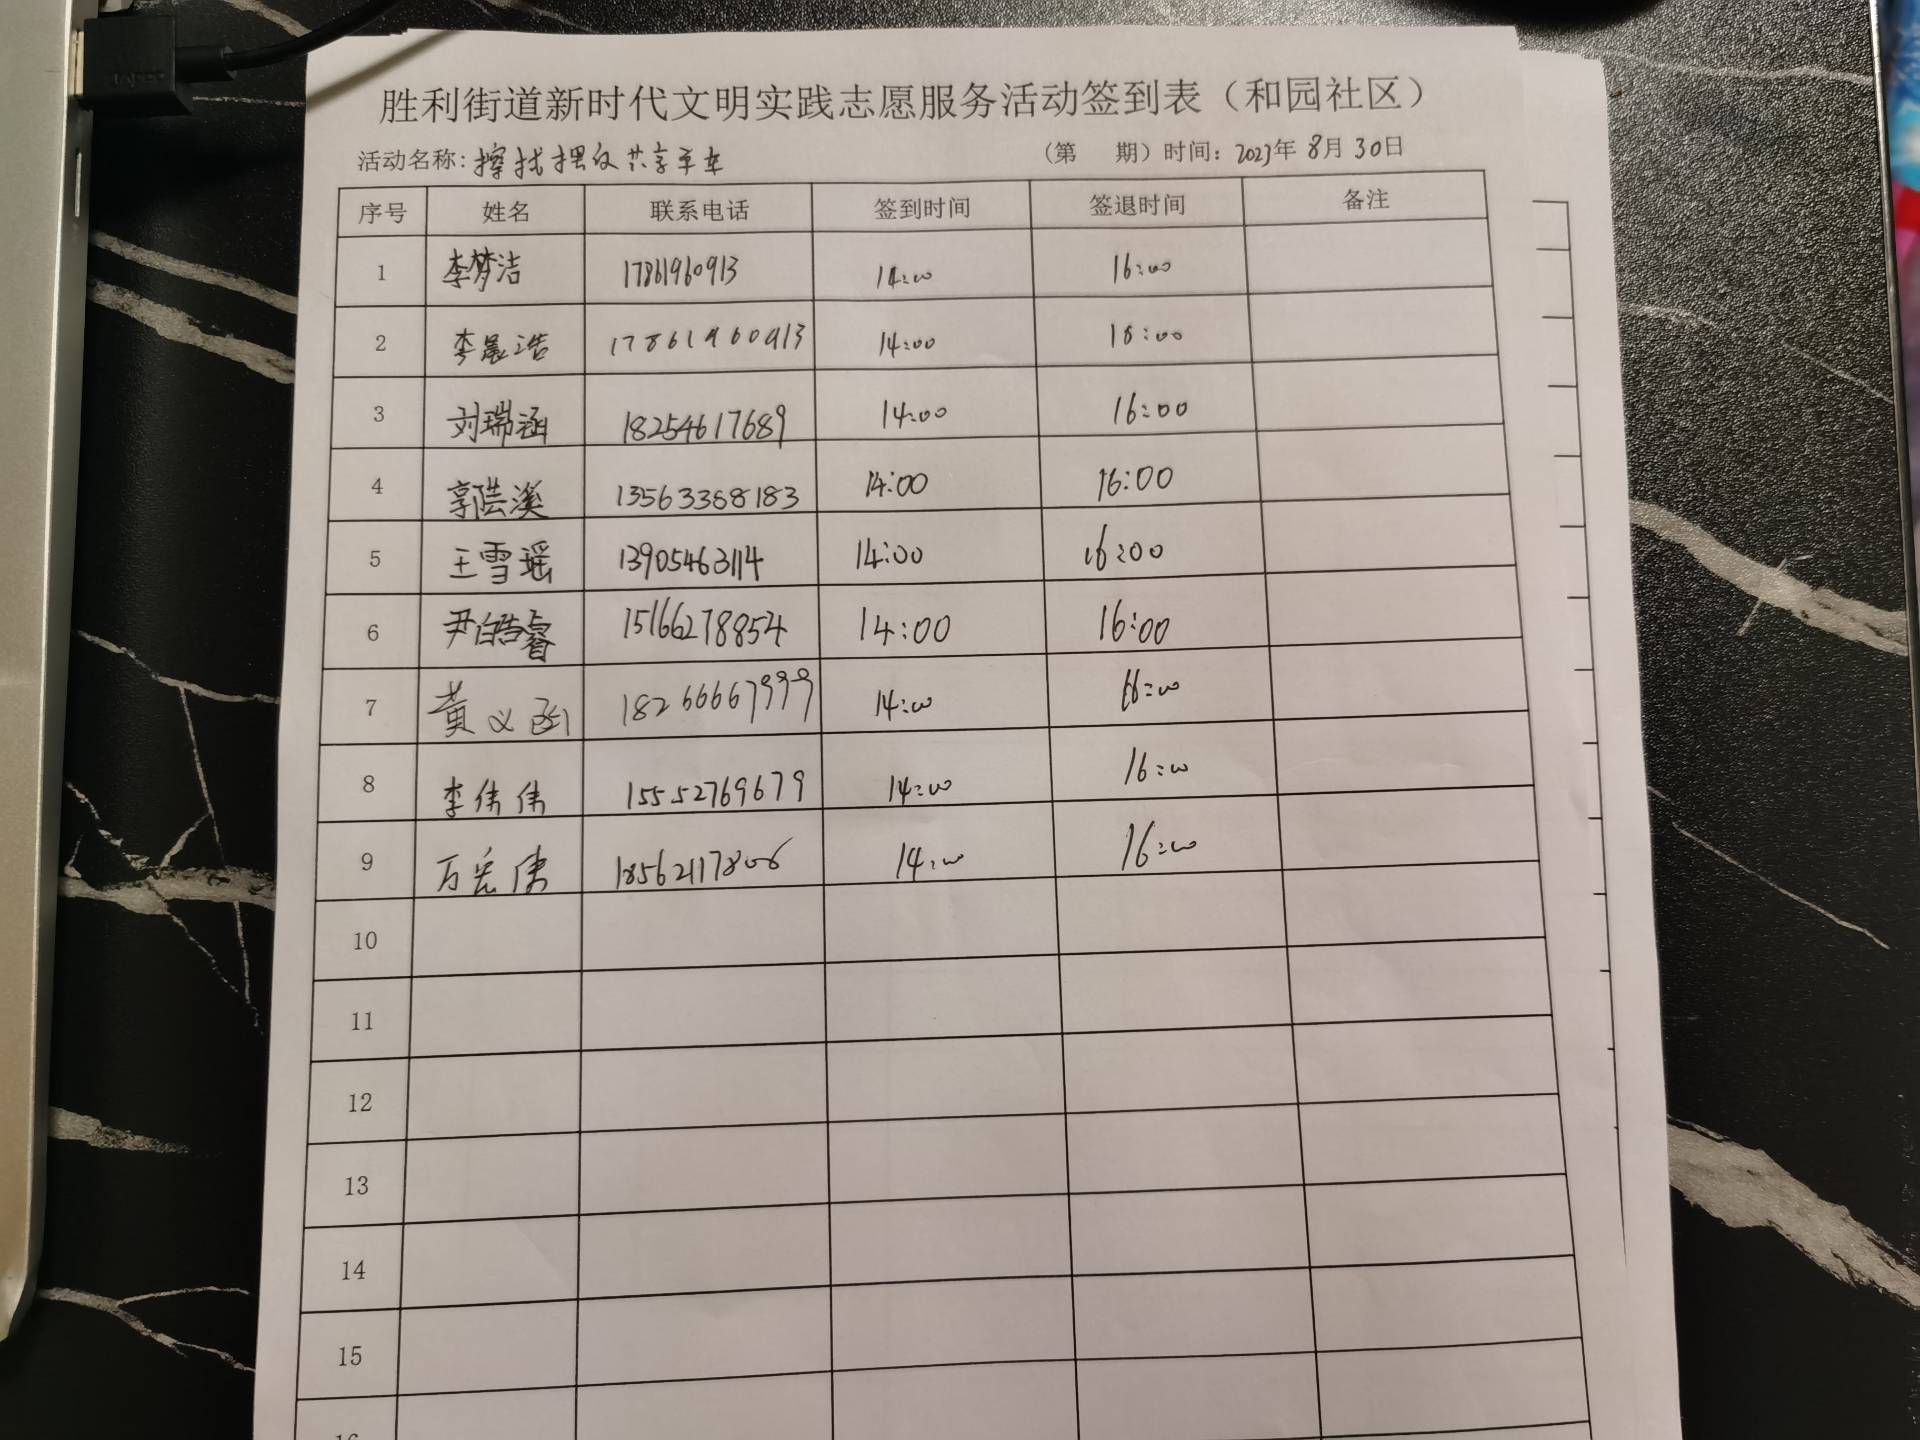 胜利街道新时代文明实践志愿服务活动签到表（和园社区）
活动名称：擦拭摆放共享单车 （第 期）时间：2023年8月30日
序号 姓名 联系电话 签到时间 签退时间 备注
1 李梦洁 17861960913 14:00 16:00
2 李晨浩 17861960913 14:00 16:00
3 刘瑞涵 18254617689 14:00 16:00
4 13563368183 14:00 16:00
5 王雪瑶 13905463114 14:00 16:00
6 尹皓睿 15166278854 14:00 16:00
7 黄义函 18266667999 14:00 16:00
8 李伟伟 15552769679 14:00 16:00
9 万宏伟 18562117806 14:00 16:00
10
11
12
13
14
15
16